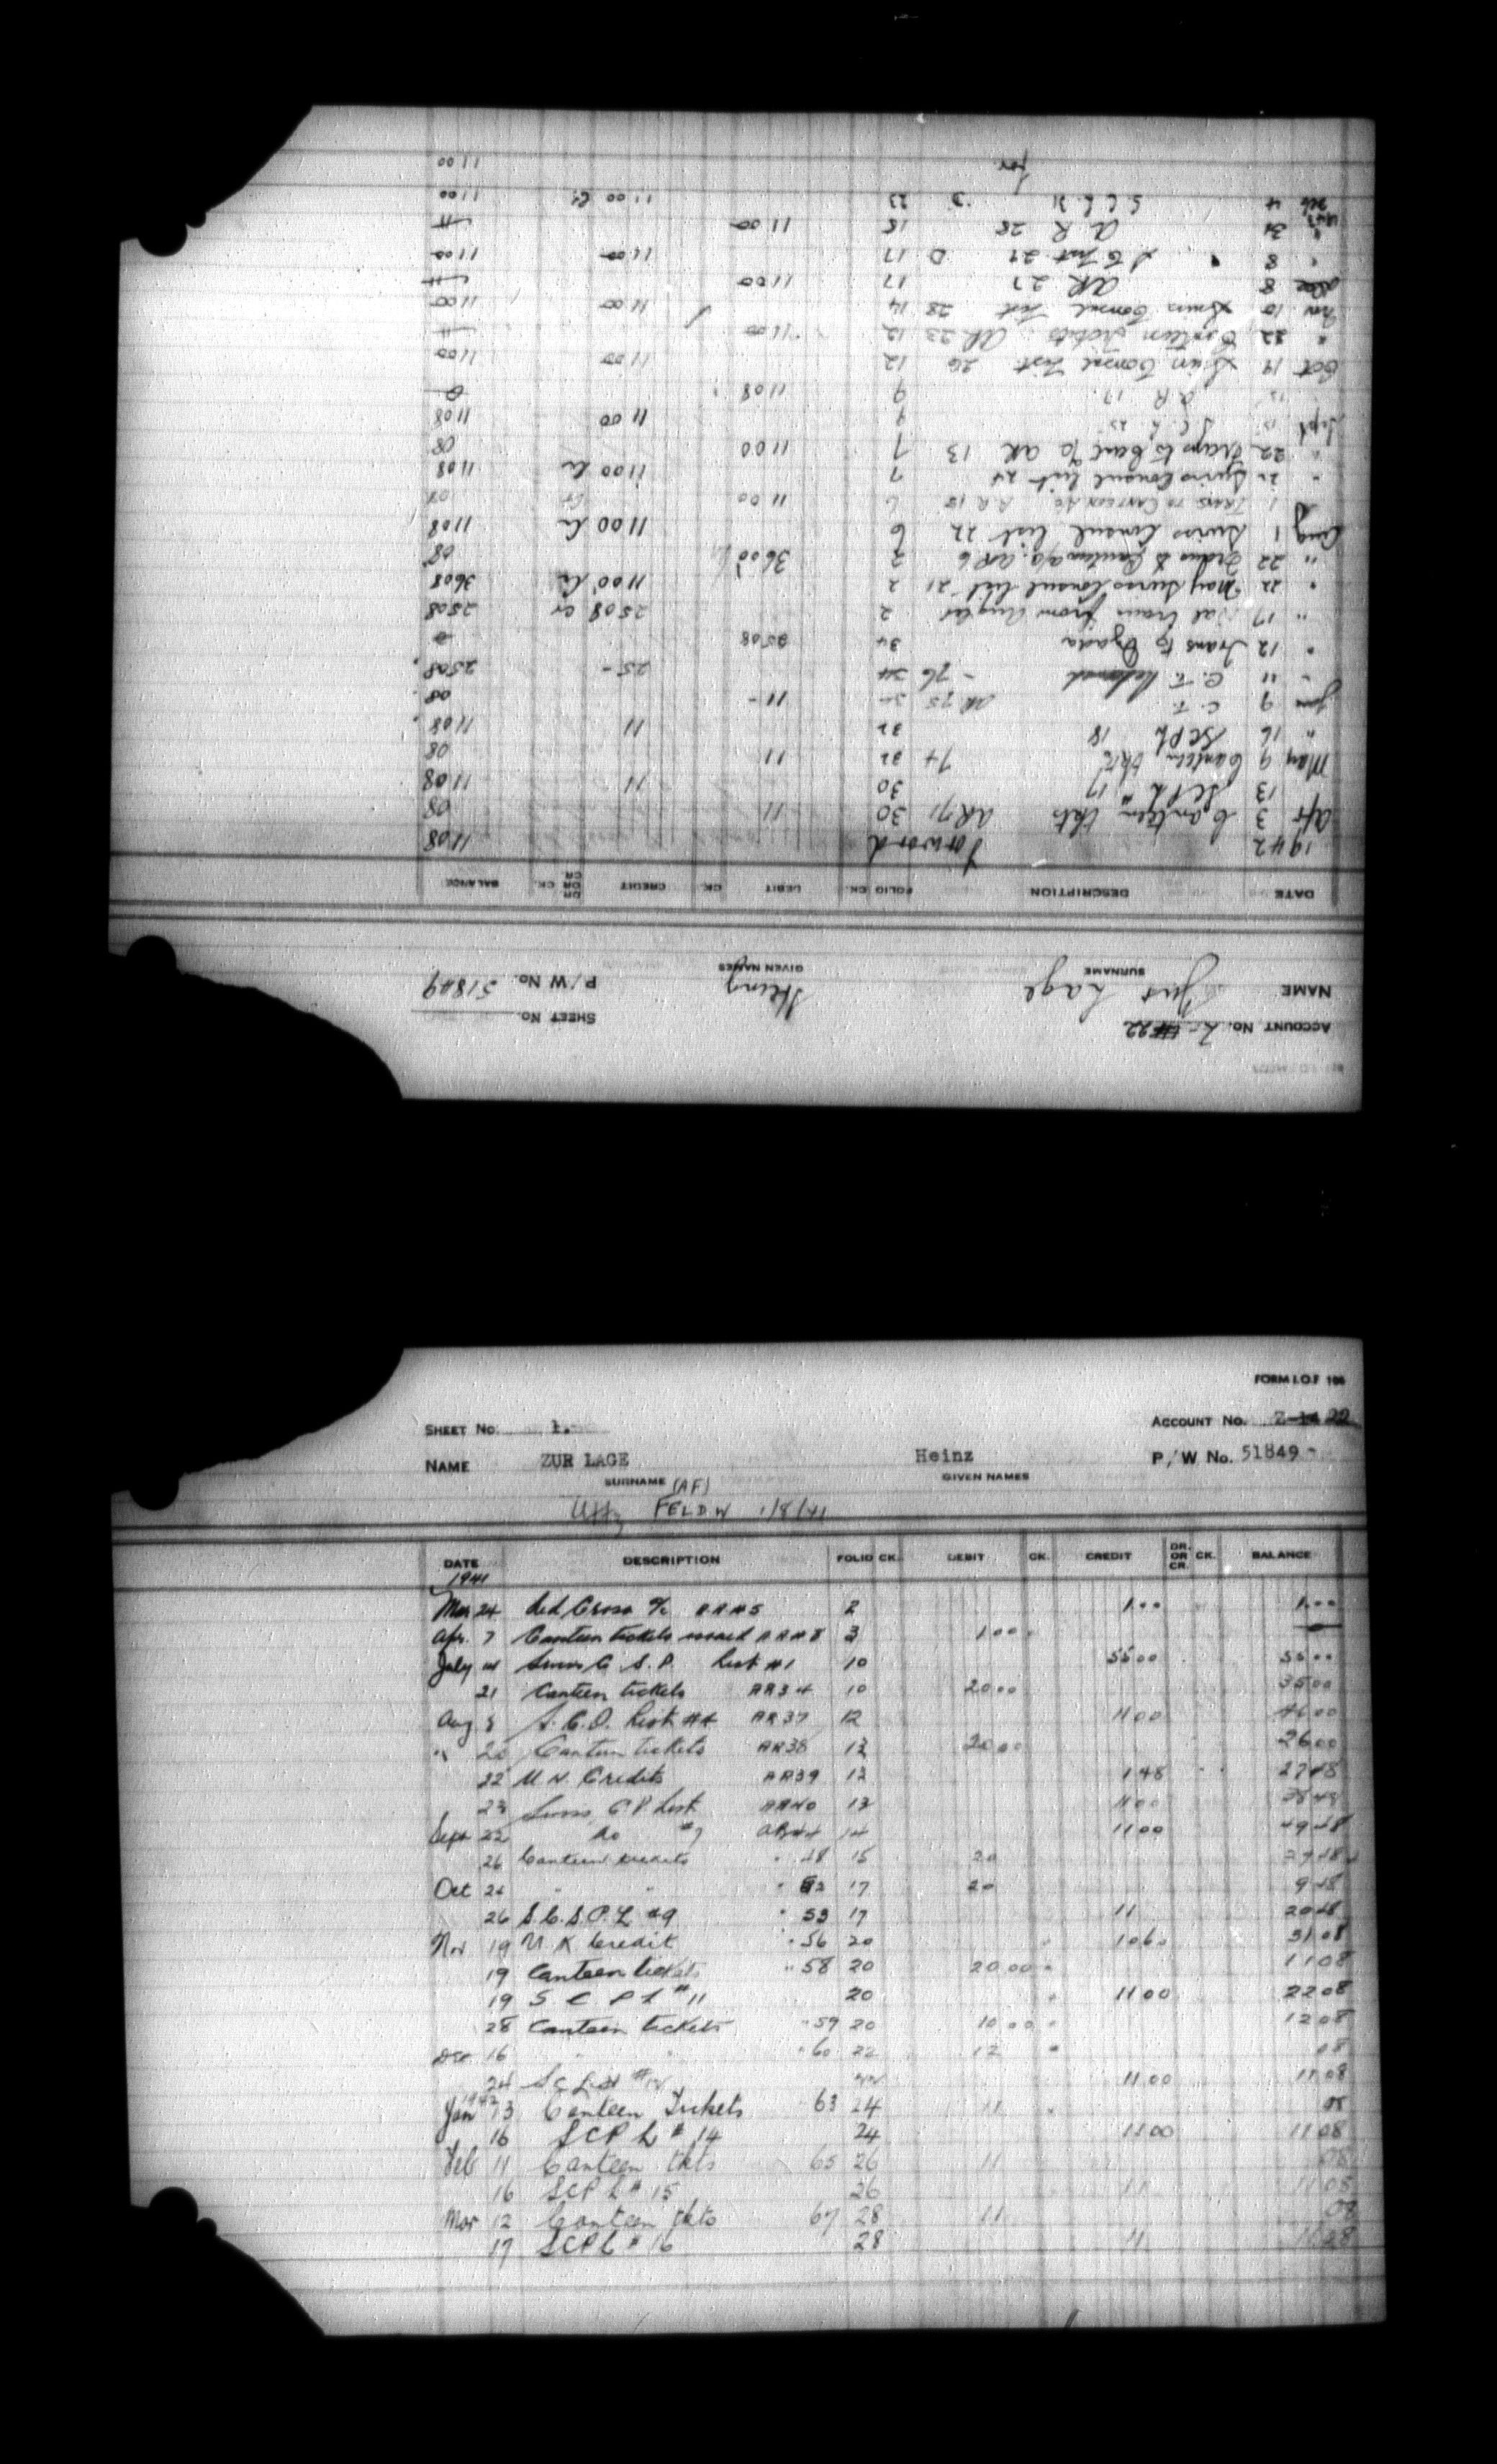 ACCOUNT No. Z-22
SHEET No.
NAME Zur Lage Heinz P/W No. 51849
SURNAME GIVEN NAMES
DATE DESCRIPTION FOLIO CK. DEBIT CK. CREDIT DR. OR CR. CK. BALANCE
1942 Forward 1108
Apr 3 Canteen tkts AR71 30 11 08
13 SCPL # 17 30 11 1108
May 9 Canteen tkts 74 32 11 08
" 16 SCPL 18 32 11 1108
June 9 C.T. AR75 11- 08
" 11 C.T. Returned - 76 34 25- 2508
" 12 Trans to Ozada 34 2508 0
" 17 Bal trans from Angler 2 2508 Cr 2508
" 22 May Swiss Consul list 21 2 1100 Cr 3608
" 22 Trans to Canteen a/c AR6 2 3600 08
Aug 1 Swiss Consul list 22 6 1100 Cr 1108
1 TRANS TO CANTEEN A/C A.R. 10 6 1100 08
" 22 Swiss Consul list 24 7 1100 Cr 1108
" 22 Trans to Cant a/c AR 13 7 1100 08
Sept 15 S.C.L. 25 9 1100 1108
15 A.R. 17 9 1108 0
Oct 19 Swiss Consul List 26 12 1100 1100
" 22 Canteen Tickets AR 23 12 1100
Nov 10 Swiss Consul List 28 14 1100 1100
Dec 8 AR 27 17 1100
" 8 S C List 29 D 17 1100 1100
" 31 A R 28 18 1100
Feb 4 S.C.L. 31 23 1100 Cr 1100
1100
FORM I.O.F 106
SHEET No. 1. ACCOUNT No. Z-14 22
NAME ZUR LAGE Heinz P/W No. 51849-
SURNAME (AF) GIVEN NAMES
Uffz FELDW 1/8/41
DATE DESCRIPTION FOLIO CK. DEBIT CK. CREDIT DR. OR CR. CK. BALANCE
1941
Mar 24 Red Cross a/c AR#5 2 1.00 1.00
Apr. 7 Canteen tickets issued AR#8 3 1.00
July 14 Swiss C.S.P. List #1 10 5500 5500
21 Canteen tickets AR34 10 2000 3500
Aug 8 S.C.P. List #4 AR37 12 1100 4600
" 20 Canteen tickets AR38 12 2000 2600
22 U K Credits AR39 12 148 2748
23 Swiss C.P. List AR40 12 1100 3848
Sept 22 do #7 AR44 14 1100 4948
26 Canteen tickets " 48 15 20 2948
Oct 26 " " " 52 17 20 948
26 S.C.S.P.L #9 " 53 17 11 2048
Nov 19 U K Credit " 56 20 1060 3108
19 Canteen tickets " 58 20 2000 1108
19 S C P L # 11 20 1100 2208
28 Canteen tickets " 59 20 1000 1208
Dec 16 " " " 60 22 12 08
24 S C List #12 22 1100 1108
1942
Jan 13 Canteen Tickets 63 24 11 08
16 SCP L # 14 24 1100 1108
Feb 11 Canteen tkts 65 26 11 08
16 SCP L # 15 26 11 1108
Mar 12 Canteen tkts 67 28 11 08
17 SCPL # 16 28 11 1108